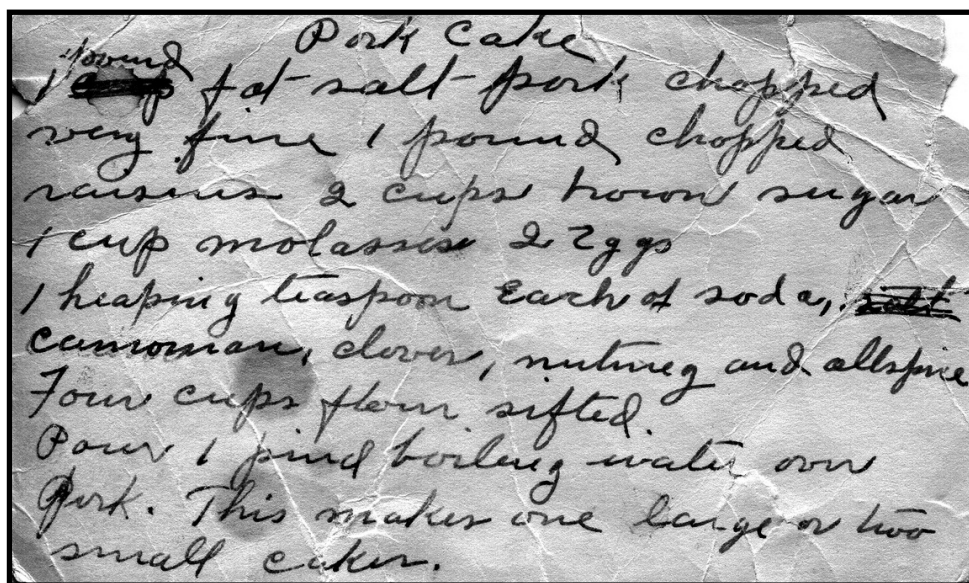 Pork Cake
pound
1 cup fat salt pork chopped
very fine 1 pound chopped
raisins 2 cups brown sugar
1 cup molasses 2 eggs
1 heaping teaspoon Each of soda, salt
cannoman, cloves, nutmeg and allspice
Four cups flour sifted.
Pour 1 pind boiling water over
Pork. This makes one large or two
small cakes.